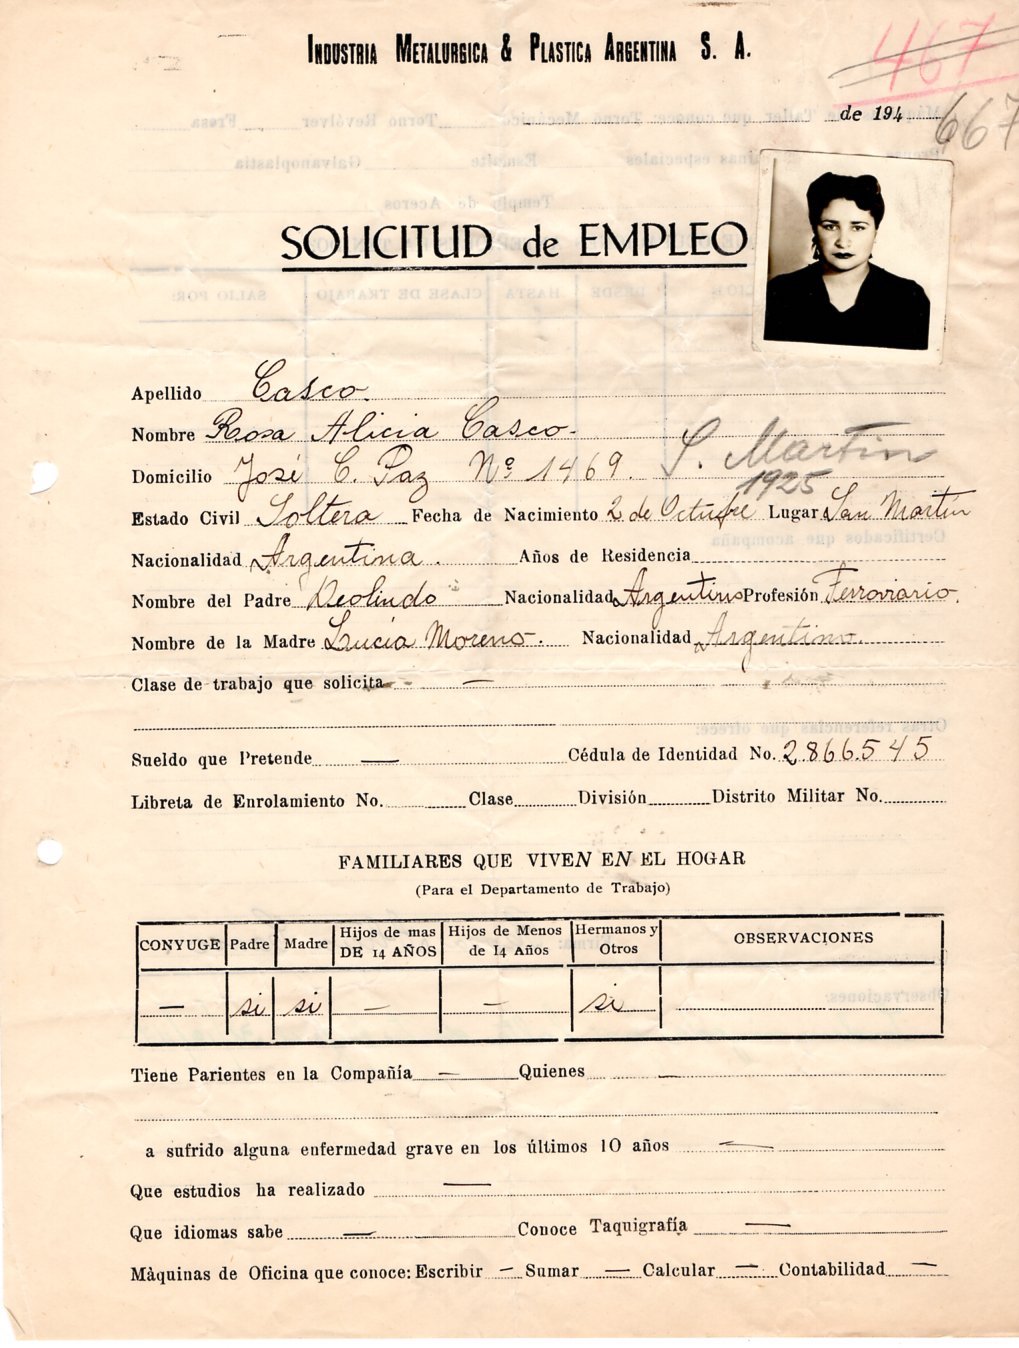 INDUSTRIA METALURGICA & PLASTICA ARGENTINA S. A.
467
de 194
667
SOLICITUD de EMPLEO
Apellido Casco.
Nombre Rosa Alicia Casco.
Domicilio José C. Paz Nº 1469. S. Martin
1925
Estado Civil Soltera Fecha de Nacimiento 2 de Octubre Lugar San Martín
Nacionalidad Argentina. Años de Residencia
Nombre del Padre Deolindo Nacionalidad Argentino Profesión Ferroviario.
Nombre de la Madre Lucía Moreno. Nacionalidad Argentino.
Clase de trabajo que solicita —
Sueldo que Pretende — Cédula de Identidad No. 2.866.545
Libreta de Enrolamiento No. Clase División Distrito Militar No.
FAMILIARES QUE VIVEN EN EL HOGAR
(Para el Departamento de Trabajo)
CONYUGE Padre Madre Hijos de mas DE 14 AÑOS Hijos de Menos de 14 Años Hermanos y Otros OBSERVACIONES
— si si — — si
Tiene Parientes en la Compañía — Quienes —
a sufrido alguna enfermedad grave en los últimos 10 años —
Que estudios ha realizado —
Que idiomas sabe — Conoce Taquigrafía —
Màquinas de Oficina que conoce: Escribir — Sumar — Calcular — Contabilidad —